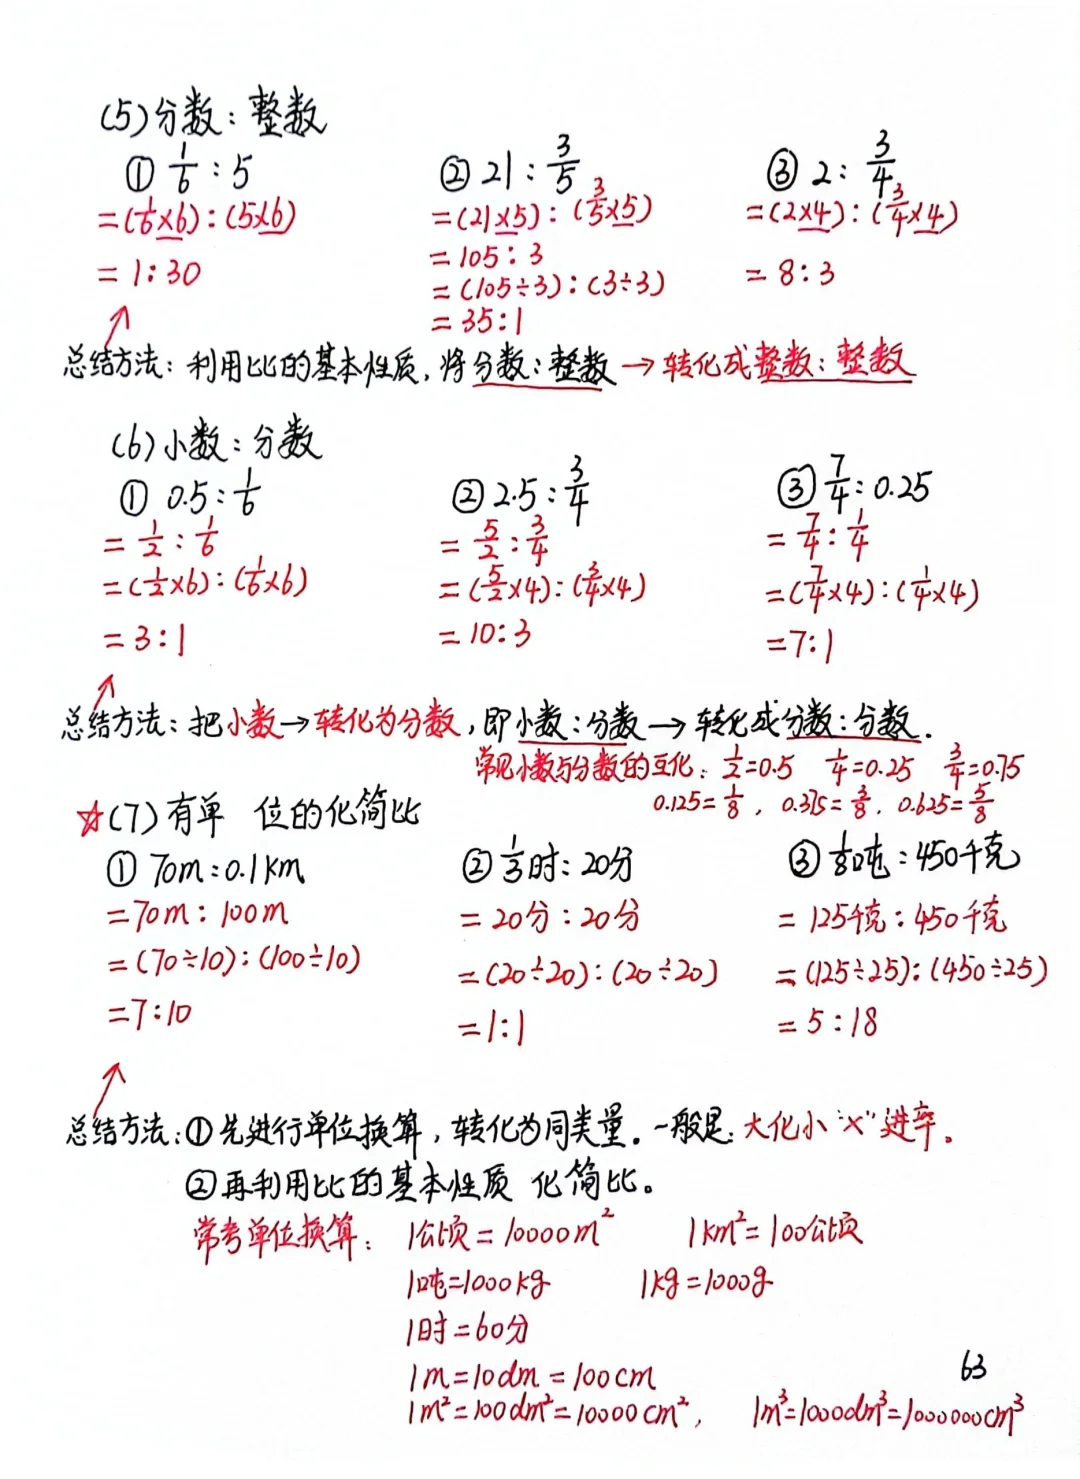 (5)分数：整数
① 1/6 : 5    ② 21 : 3/5    ③ 2 : 3/4
=(1/6×6):(5×6)    =(21×5):(3/5×5)    =(2×4):(3/4×4)
=1:30    =105:3    =8:3
=(105÷3):(3÷3)
=35:1
总结方法：利用比的基本性质，将分数：整数→转化成整数：整数
(6)小数：分数
① 0.5 : 1/6    ② 2.5 : 3/4    ③ 7/4 : 0.25
=1/2 : 1/6    =5/2 : 3/4    =7/4 : 1/4
=(1/2×6):(1/6×6)    =(5/2×4):(3/4×4)    =(7/4×4):(1/4×4)
=3:1    =10:3    =7:1
总结方法：把小数→转化为分数，即小数：分数→转化成分数：分数.
常见小数与分数的互化：1/2=0.5  1/4=0.25  3/4=0.75
0.125=1/8，0.375=3/8，0.625=5/8
☆(7)有单 位的化简比
① 70m:0.1km    ② 1/3时:20分    ③ 1/8吨:450千克
=70m:100m    =20分:20分    =125千克:450千克
=(70÷10):(100÷10)    =(20÷20):(20÷20)    =(125÷25):(450÷25)
=7:10    =1:1    =5:18
总结方法：①先进行单位换算，转化为同类量。一般是：大化小"×"进率。
②再利用比的基本性质 化简比。
常考单位换算：1公顷=10000m²    1km²=100公顷
1吨=1000kg    1kg=1000g
1时=60分
63
1m=10dm=100cm
1m²=100dm²=10000cm²，  1m³=1000dm³=1000000cm³